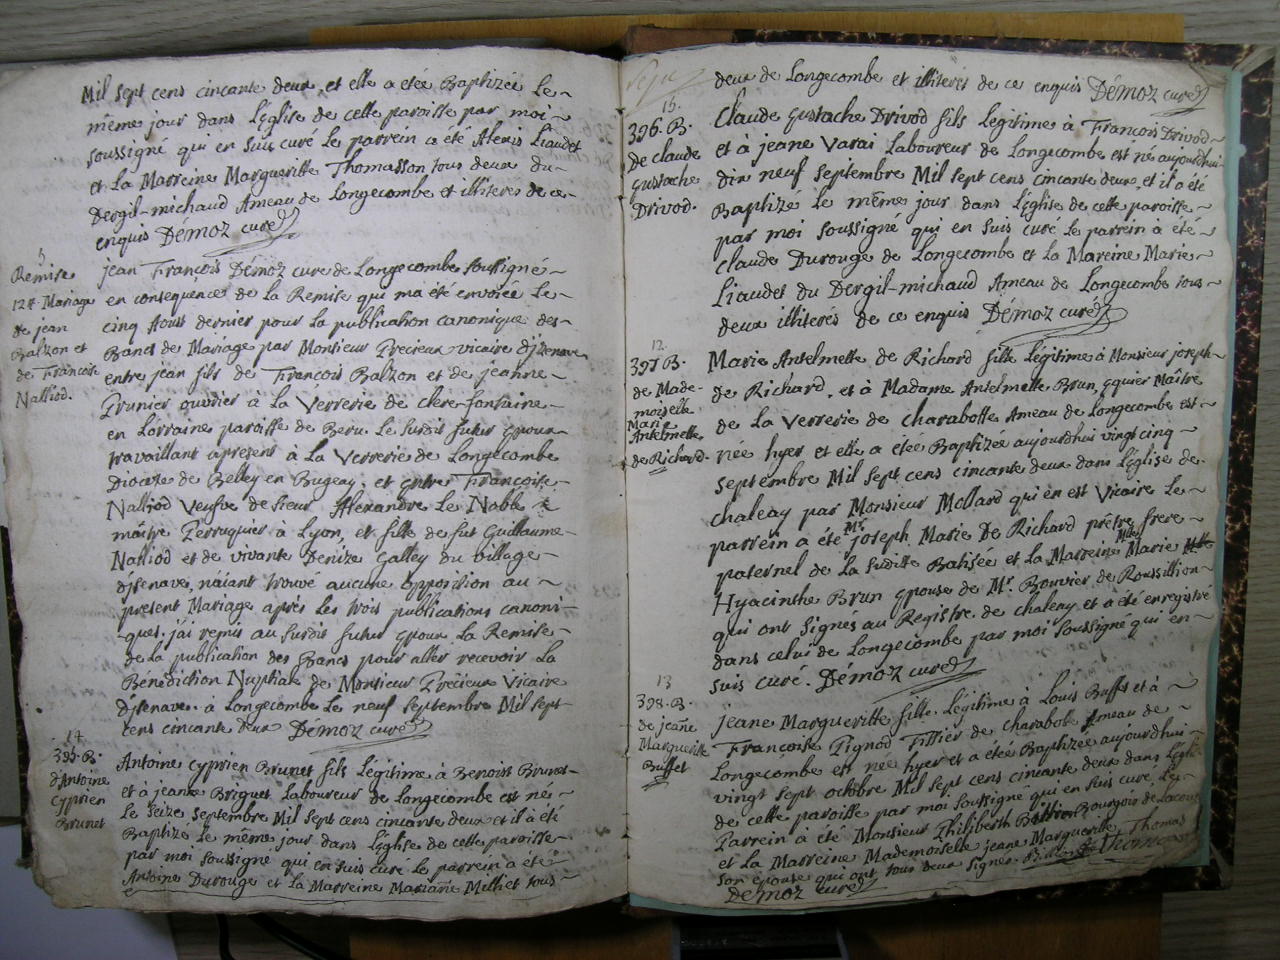 Mil sept cens cincante deux, et elle a etée Baptizée Le
même jour dans L'église de cette paroisse par moi
soussigné qui en suis curé Le parrein a été Alexis Liaudet
et La Marreine Margueritte Thomasson tous deux du
Dergil-michaud Ameau de Longecombe et illiterés de ce
enquis Démoz curé
5
Remise
124 Mariage
de jean
Balzon et
de Francoise
Nalliod.
jean François Démoz curé de Longecombe soussigné
en consequence de La Remise qui ma été envoiée Le
cinq Aoust dernier pour La publication canonique des
Bancs de Mariage par Monsieur Precieux vicaire d'jzenave
entre jean fils de François Balzon et de jeanne
Prunier ouvrier à La Verrerie de clere-fontaine
en Lorraine paroisse de Beru. Le susdit futur epoux
travaillant apresent à La Verrerie de Longecombe
Diocèze de Belley en Bugeay, et entre Françoise
Nalliod Veufve de sieur Alexandre Le Noble
maître Perruquier à Lyon, et fille de fut Guillaume
Nalliod et de vivante Denize Galley du village
d'jsenave, n'aiant trouvé aucune opposition au
present Mariage après Les trois publications canoni-
ques. j'ai remis au susdit futur epoux La Remise
de La publication des Bancs pour aller recevoir La
Bénediction Nuptiale de Monsieur Precieux Vicaire
d'jsenave. à Longecombe Le neuf septembre Mil sept
cens cincante deux Démoz curé
14
395. B.
d'Antoine
Cyprien
Brunet
Antoine Cyprien Brunet fils Légitime à Benoist Brunet
et à jeanne Briguet Laboureur de Longecombe est né
Le seize septembre Mil sept cens cincante deux et il a été
Baptizé Le même jour dans L'église de cette paroisse
par moi soussigné qui en suis curé Le parrein a été
Antoine Durouge et La Marreine Mariane Milliet tous
deux de Longecombe et illiterés de ce enquis Démoz curé
15.
396. B.
de claude
Eustache
Drivod.
Claude Eustache Drivod fils Légitime à François Drivod
et à jeane Varai Laboureur de Longecombe est né aujourdhui
dix neuf septembre Mil sept cens cincante deux, et il a été
Baptizé Le même jour dans L'église de cette paroisse
par moi soussigné qui en suis curé Le parrein a été
Claude Durouge de Longecombe et La Mareine Marie
Liaudet du Dergil-michaud Ameau de Longecombe tous
deux illiterés de ce enquis Démoz curé
12.
397 B.
de Made-
moiselle
Marie
Antelmette
de Richard.
Marie Antelmette de Richard fille Légitime à Monsieur joseph
de Richard, et à Madame Antelmette Brun, equier Maître
de La Verrerie de charabotte Ameau de Longecombe est
née hyer et elle a étée Baptizée aujourdhui vingt cinq
septembre Mil sept cens cincante deux dans L'église de
chaleay par Monsieur Mollard qui en est Vicaire Le
parrein a été Mr. joseph Marie De Richard prêtre frere
paternel de La susdite Batisée et La Marreine Marie
Hyacinthe Brun epouse de Mr. Bouvier de Roussillion
qui ont signés au Registre de chaleay et a été enregistré
dans celui de Longecombe par moi soussigné qui en
suis curé. Démoz curé
13
398. B.
de jeane
Margueritte
Buffet
jeane Margueritte fille Légitime à Louis Buffet et à
Francoise Pignod Fillier de charabote Ameau de
Longecombe est née hyer et a étée Baptizée aujourdhui
vingt sept octobre Mil sept cens cincante deux dans L'église
de cette paroisse par moi soussigné qui en suis curé, Le
Parrein a été Monsieur Philiberth Billion Bourgois de
et La Marreine Mademoiselle jeane Margueritte Thomas
son epouse qui ont tous deux signés. Billion Thomas
Démoz curé